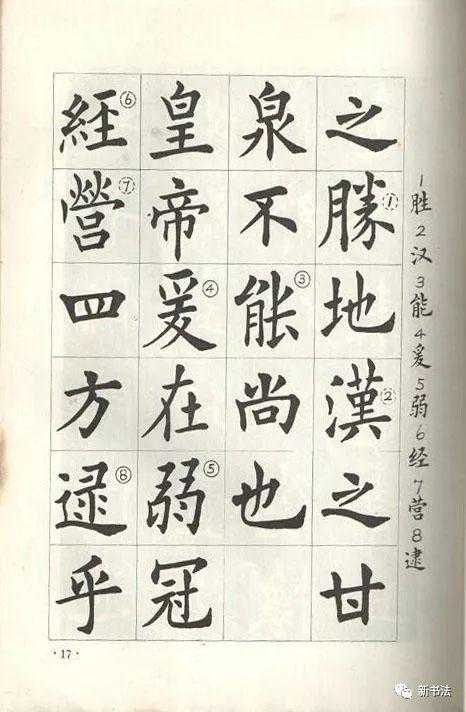 之勝①地漢②之甘
泉不能③尚也
皇帝爰④在弱⑤冠
經⑥營⑦四方逮⑧乎
1胜2汉3能4爰5弱6经7营8逮
·17·
新书法